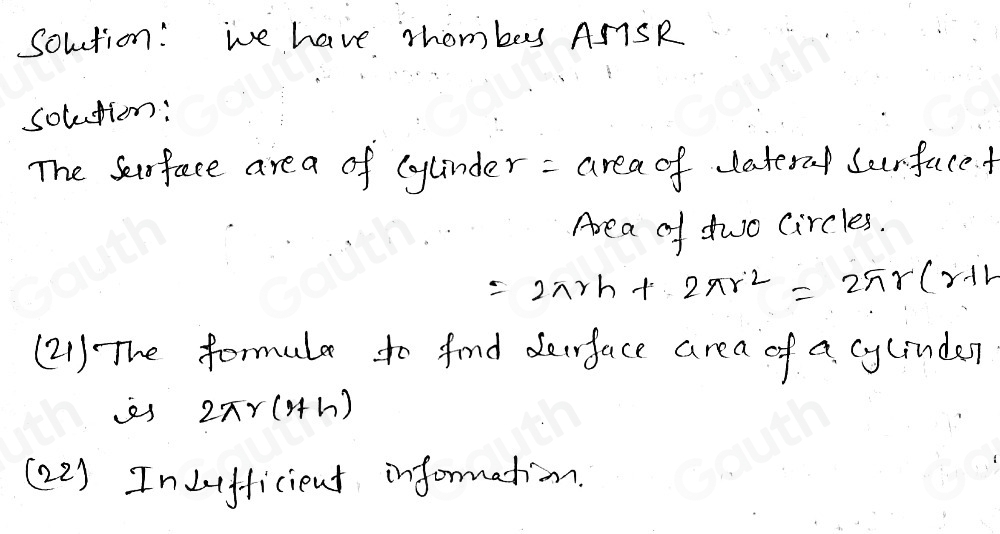 Solution: we have rhombus AMSR
Solution:
The Surface area of Cylinder = area of lateral Surface +
Area of two Circles.
= 2πrh + 2πr² = 2πr(r+h
(21) The formula to find Surface area of a cylinder
is 2πr(r+h)
(22) Insufficient information.